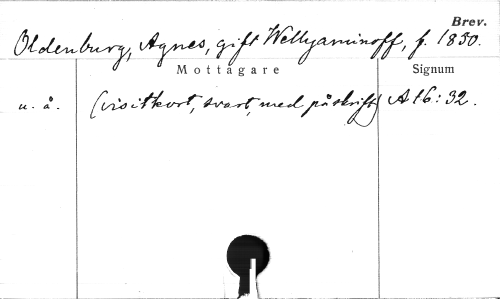 Brev.
Oldenburg, Agnes, gift Wellyaminoff, f. 1850.
Mottagare Signum
u. å. (visitkort, svart, med påskrift) A 16:32.